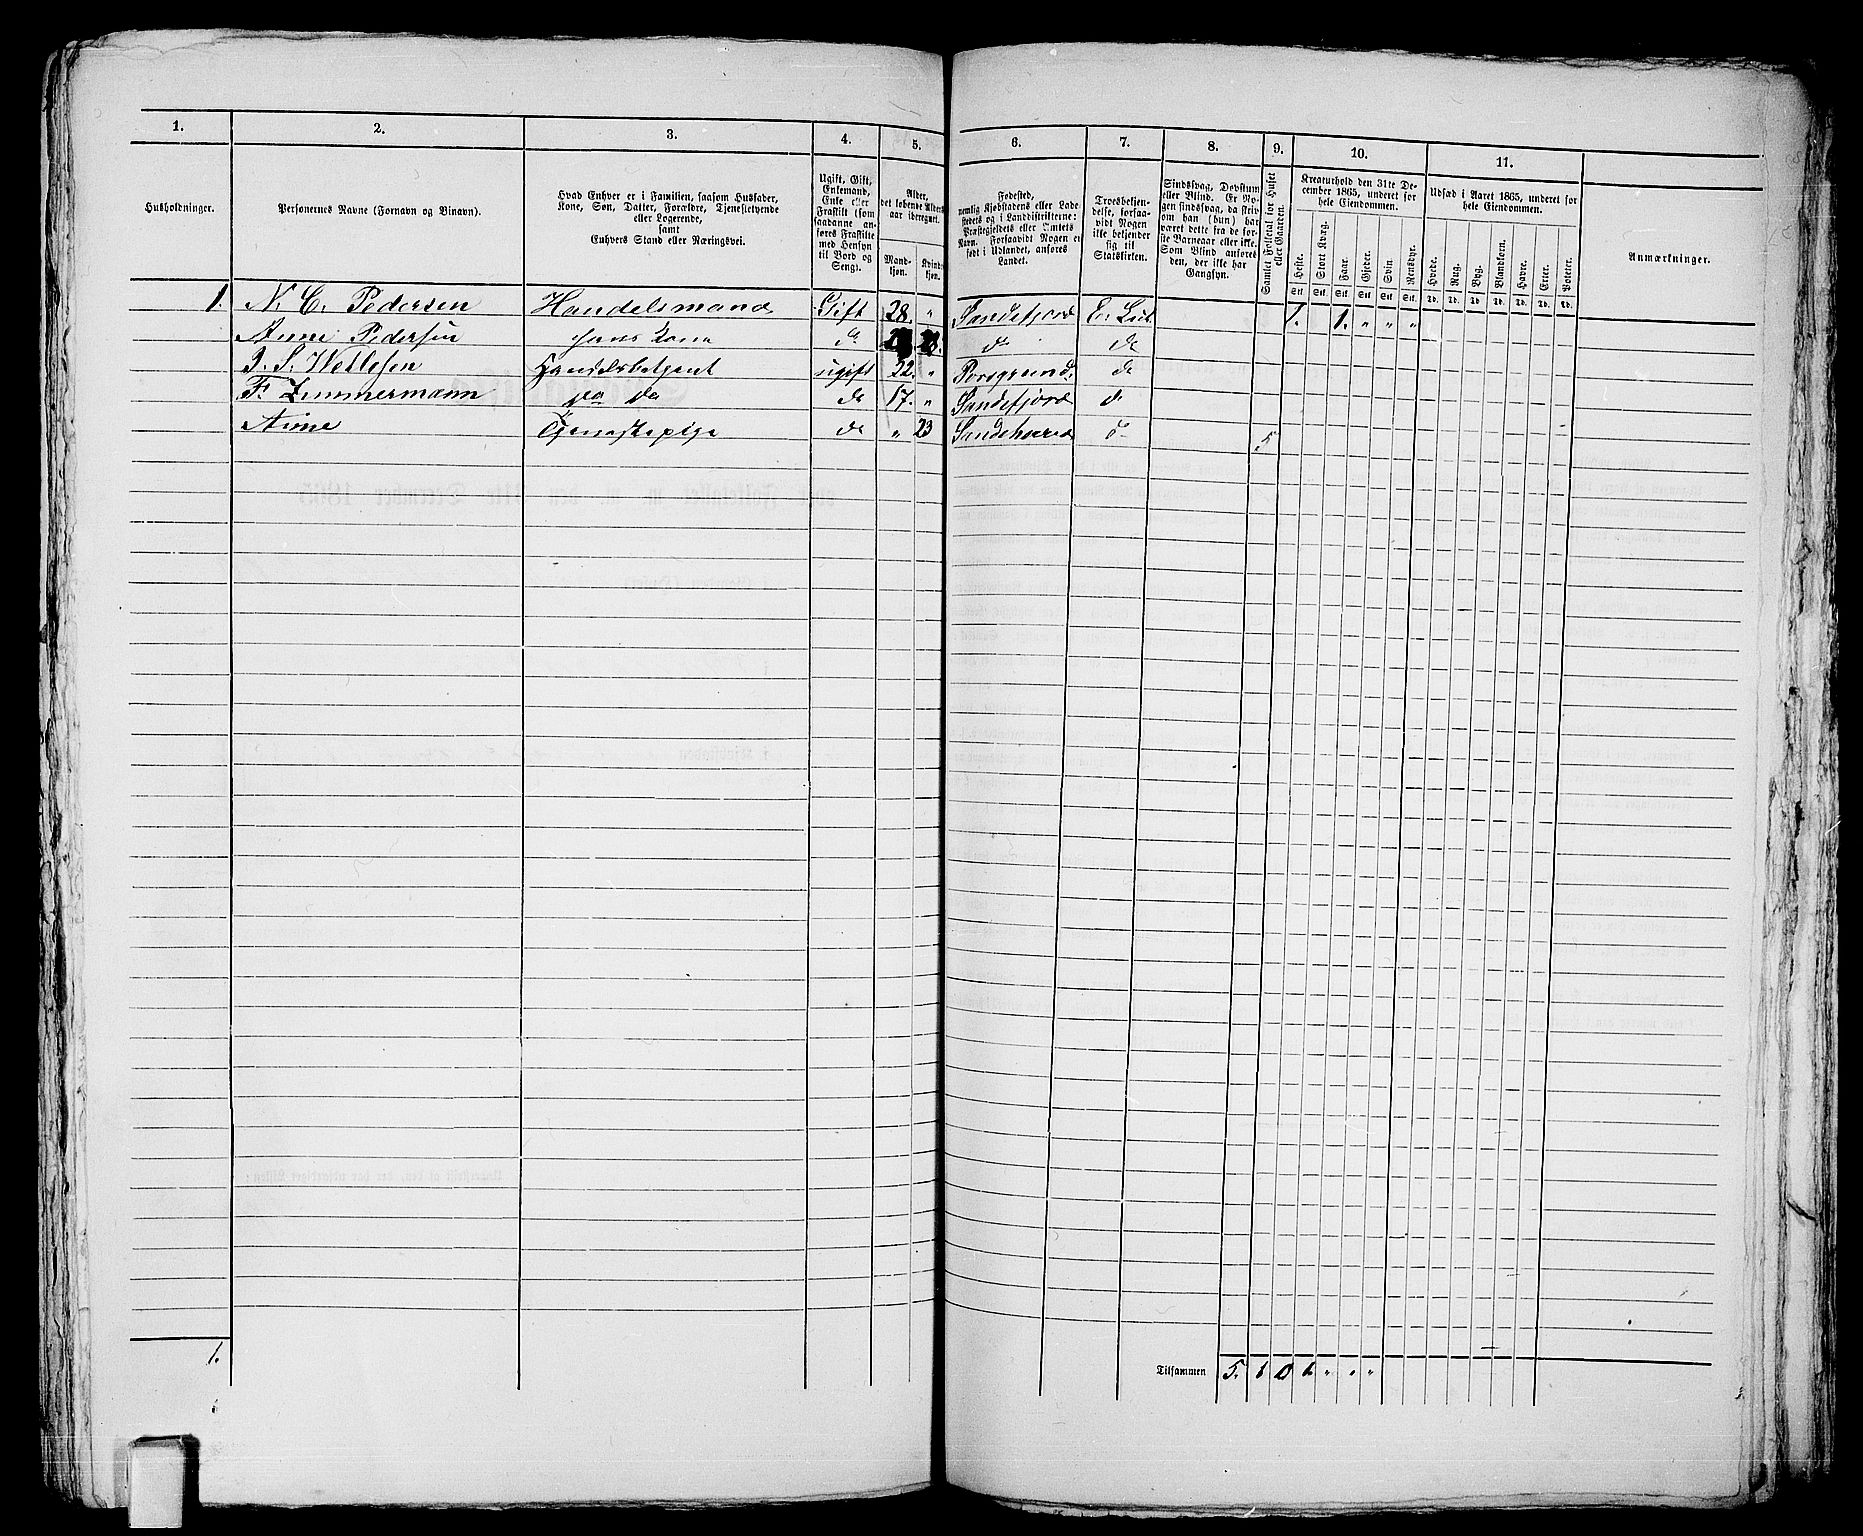 1. 2. 3. 4. 5. 6. 7. 8. 9. 10. 11.
Husholdninger.
Personernes Navne (Fornavn og Binavn).
Hvad Enhver er i Familien, saasom Husfader,
Kone, Søn, Datter, Forældre, Tjenestetyende
eller Logerende,
samt
Enhvers Stand eller Næringsvei.
Ugift, Gift,
Enkemand,
Enke eller
Fraskilt (som
saadanne an-
føres Fraskilte
med Hensyn
til Bord og
Seng).
Alder,
det løbende Alders-
aar iberegnet.
Mand-
kjøn.
Kvind-
kjøn.
Fødested,
nemlig Kjøbstadens eller Lade-
stedets og i Landdistrikterne:
Præstegjeldets eller Amtets
Navn. Forsaavidt Nogen er
født i Udlandet, anføres
Landet.
Troesbekjen-
delse, forsaa-
vidt Nogen
ikke bekjender
sig til
Statskirken.
Sindssvag, Døvstum
eller Blind. Er No-
gen sindssvag, da skriv
om han (hun) har
været dette fra de før-
ste Barneaar eller ikke.
Som Blind anføres
den, der ikke har
Gangsyn.
Samlet Folketal for Huset
eller Gaarden.
Kreaturhold den 31te De-
cember 1865, underet for
hele Eiendommen.
Heste. Stort Kvæg. Faar. Gjeder. Svin. Rensdyr.
Stk. Stk. Stk. Stk. Stk. Stk.
Udsæd i Aaret 1865, underet for
hele Eiendommen.
Hvede. Rug. Byg. Blandkorn. Havre. Erter. Poteter.
Td. Td. Td. Td. Td. Td. Td.
Anmærkninger.
1. N. C. Pedersen Handelsmand Gift 28. " Sandefjord E. Lut. 1. 1. " " "
Anne Pedersen hans Kone do 28. do do
J. S. Wetlesen Handelsbetjent ugift 22. " Porsgrund do
F. Zimmermann do do do 17. " Sandefjord do
Anne Tjenestepige do " 23 Sandeherred do 5
1.
Tilsammen 5. 1 0 1 " " "